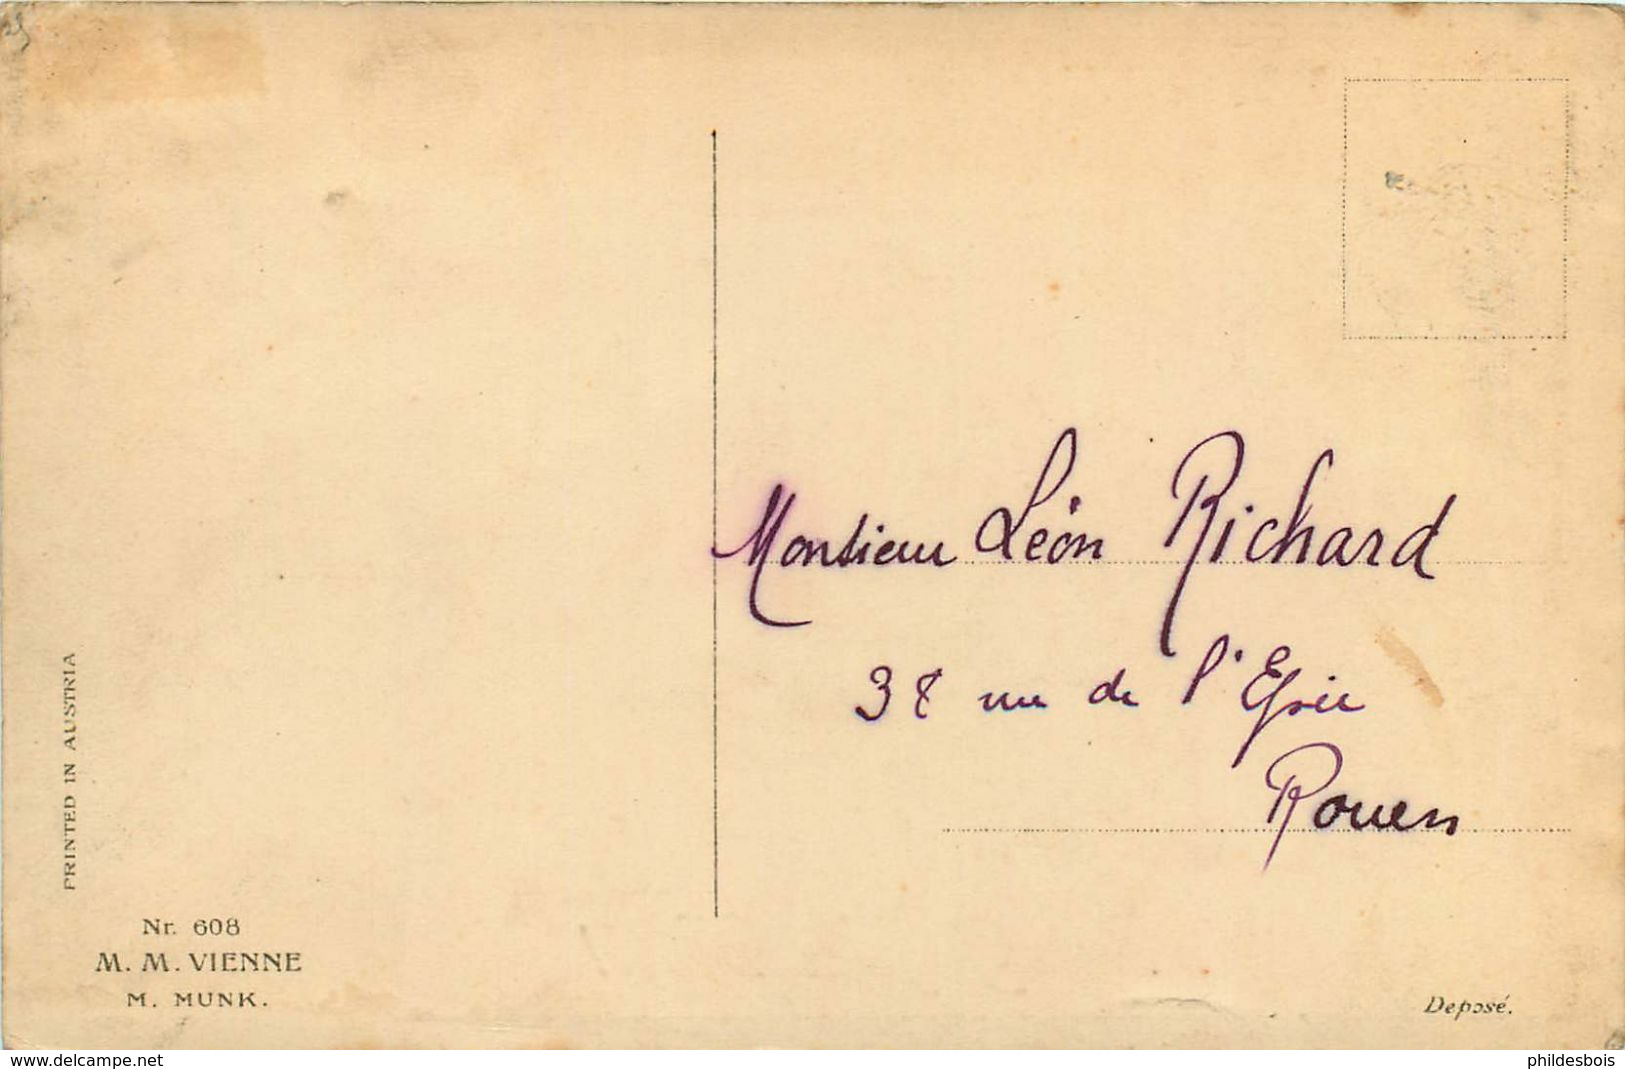 PRINTED IN AUSTRIA
Nr. 608
M. M. VIENNE
M. MUNK.
Monsieur Léon Richard
38 rue de l'Epée
Rouen
Deposé.
www.delcampe.net
phildesbois